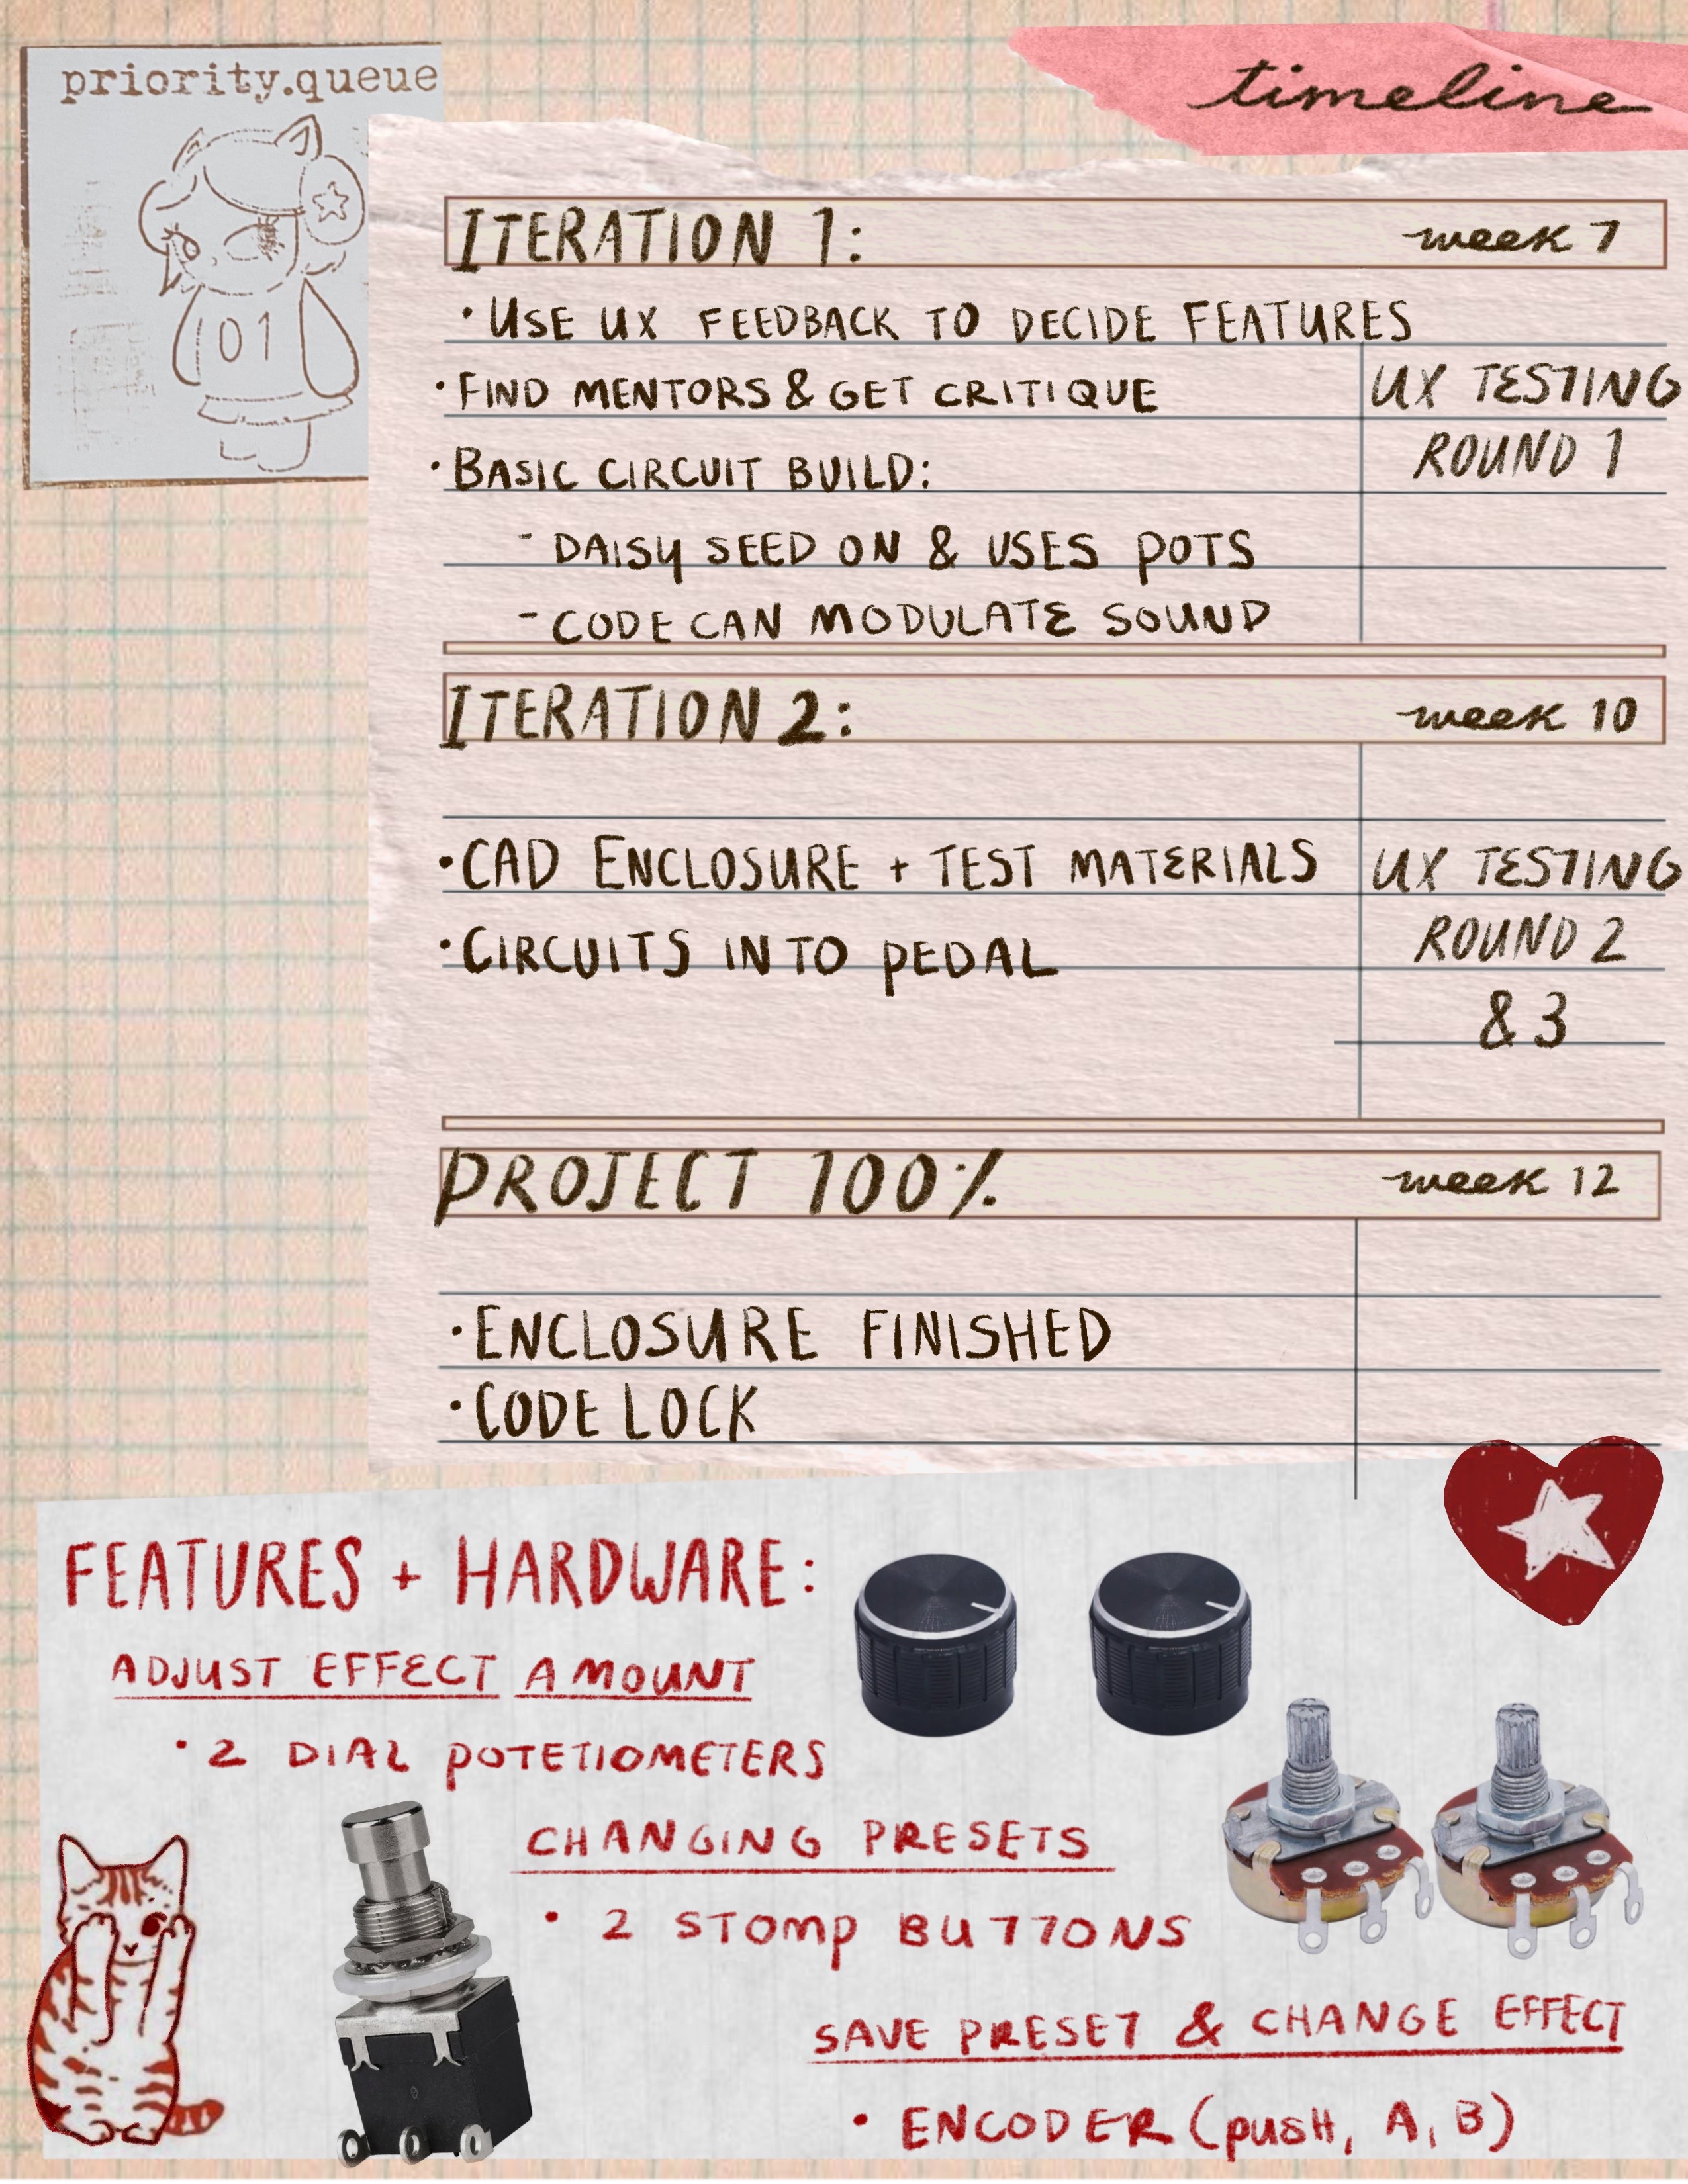 priority.queue
timeline
01
ITERATION 1: week 7
• USE UX FEEDBACK TO DECIDE FEATURES
• FIND MENTORS & GET CRITIQUE
UX TESTING
ROUND 1
• BASIC CIRCUIT BUILD:
- DAISY SEED ON & USES POTS
- CODE CAN MODULATE SOUND
ITERATION 2: week 10
• CAD ENCLOSURE + TEST MATERIALS
• CIRCUITS INTO PEDAL
UX TESTING
ROUND 2
& 3
PROJECT 100% week 12
• ENCLOSURE FINISHED
• CODE LOCK
FEATURES + HARDWARE:
ADJUST EFFECT AMOUNT
• 2 DIAL POTETIOMETERS
CHANGING PRESETS
• 2 STOMP BUTTONS
SAVE PRESET & CHANGE EFFECT
• ENCODER (PUSH, A, B)